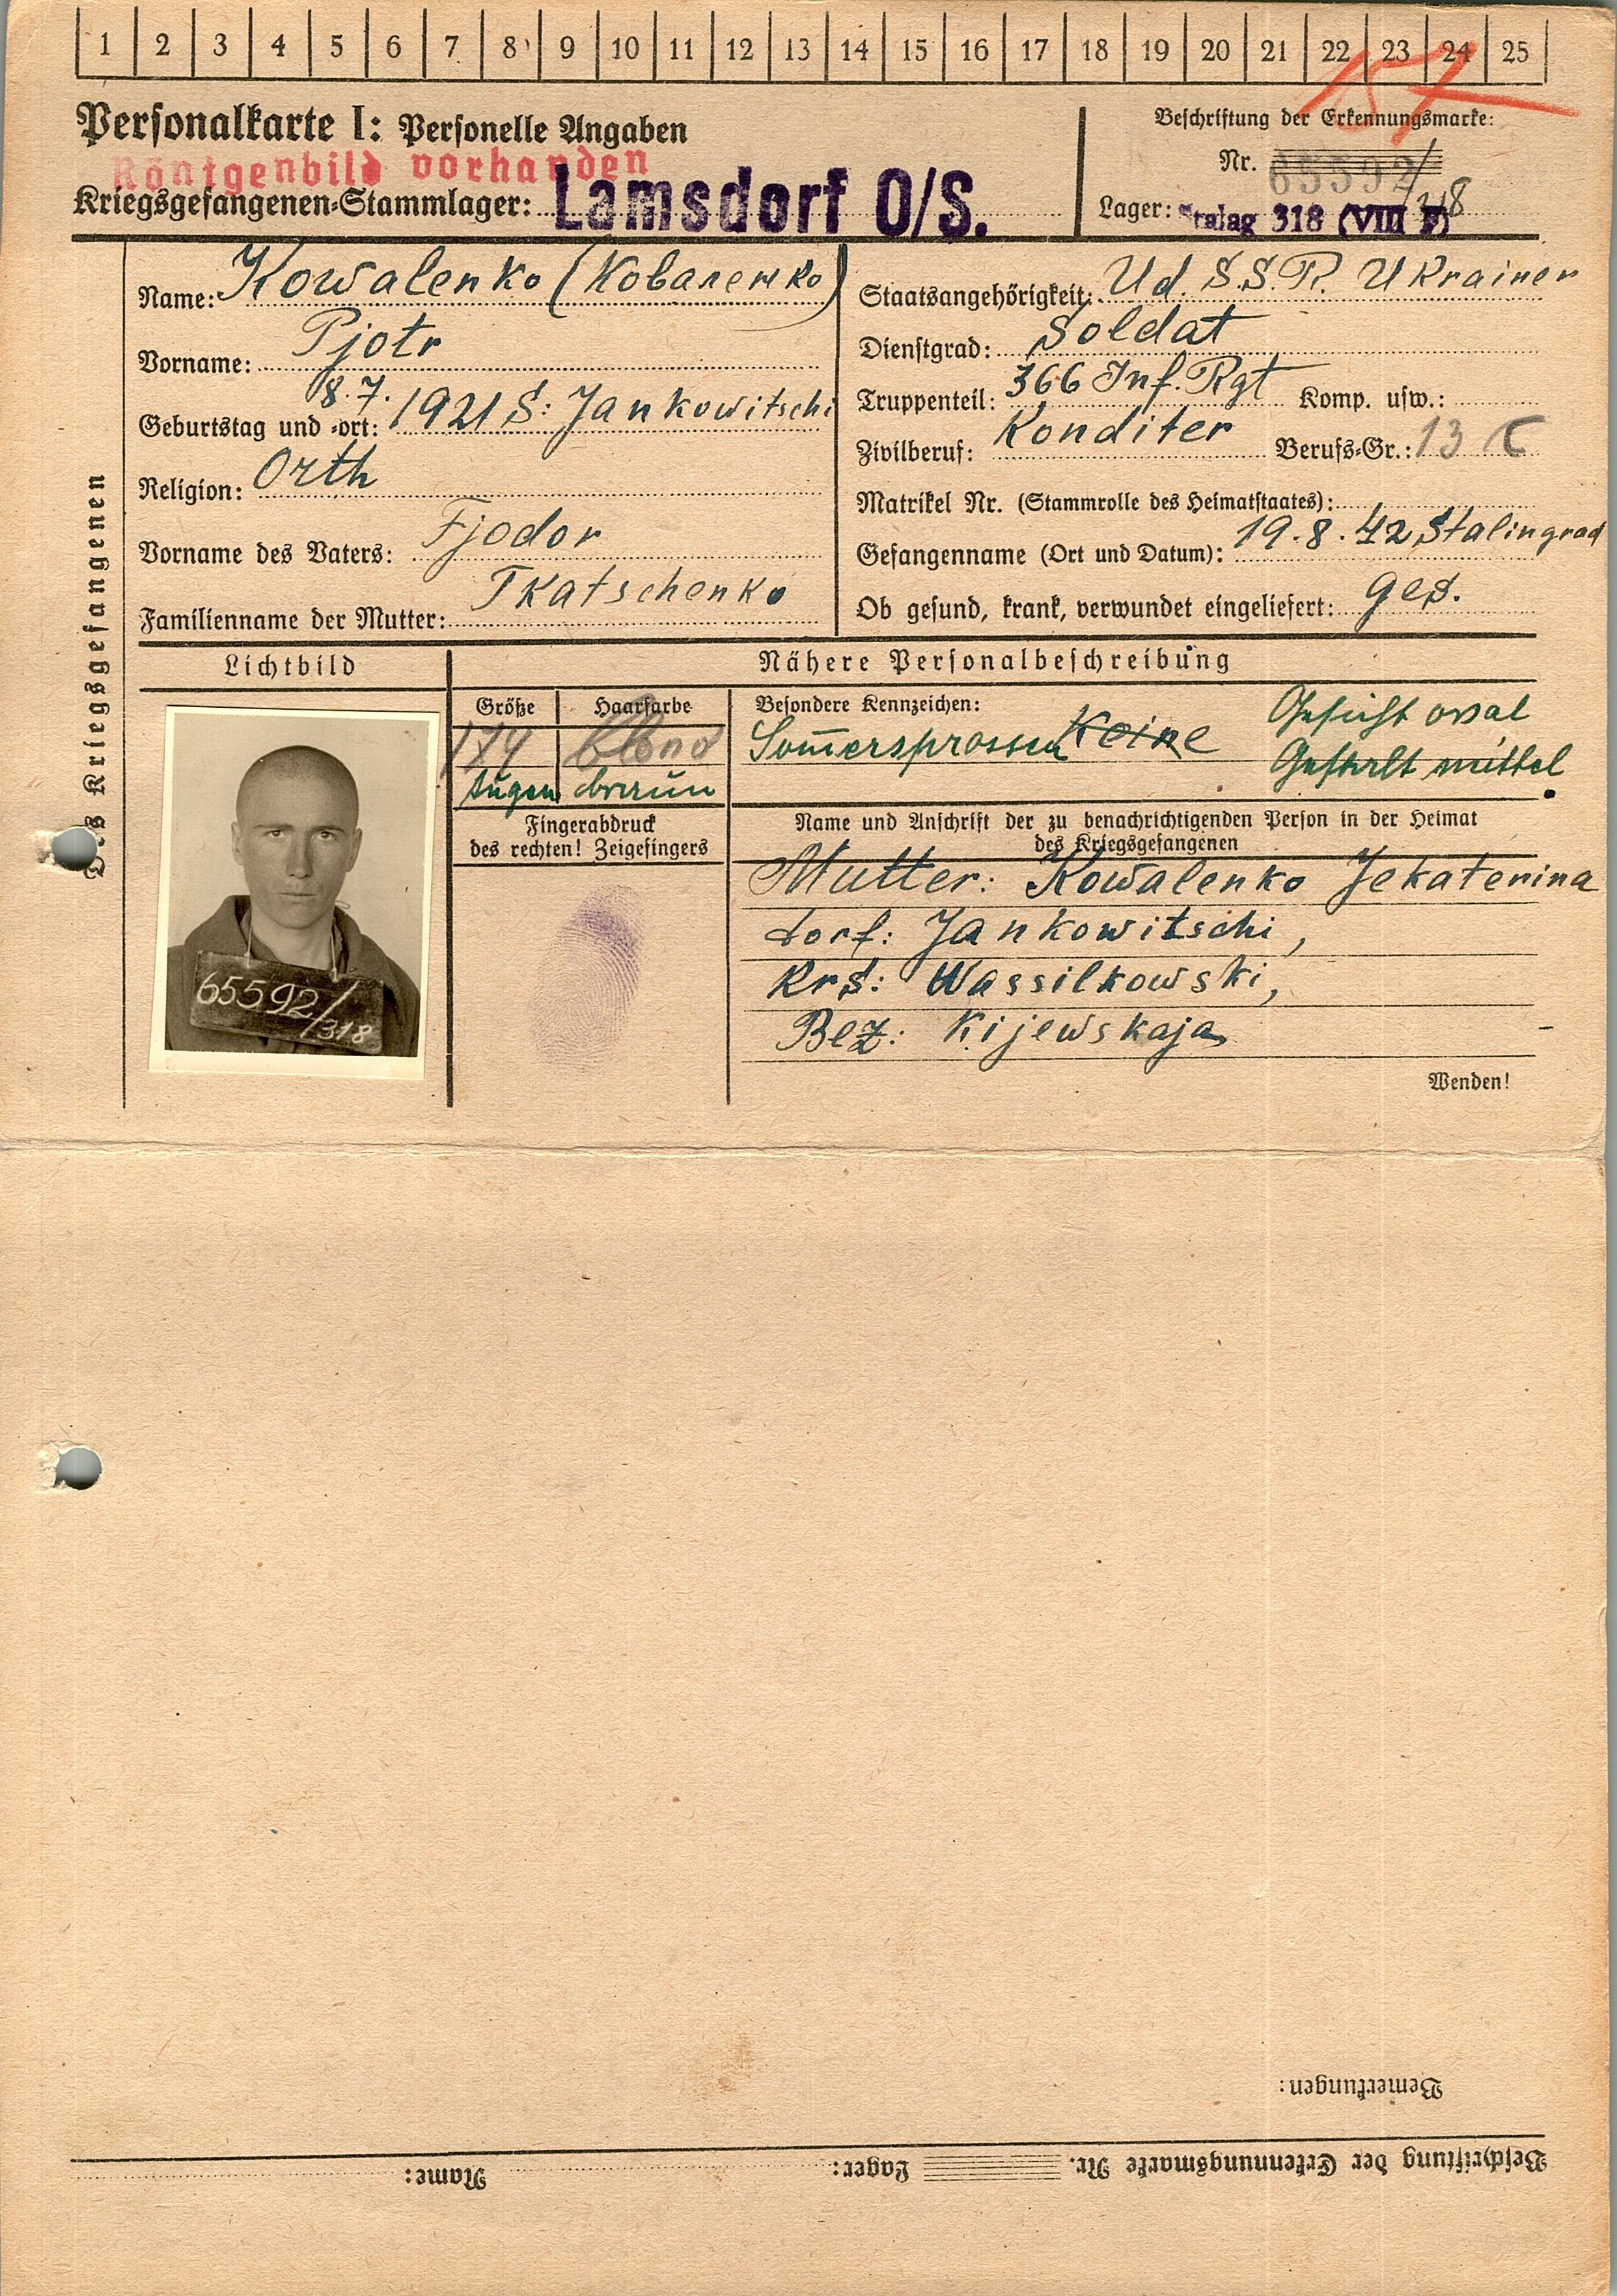 1 2 3 4 5 6 7 8 9 10 11 12 13 14 15 16 17 18 19 20 21 22 23 24 25
Personalkarte I: Personelle Angaben
Beschriftung der Erkennungsmarke:
Röntgenbild vorhanden
Nr. 65592/318
Kriegsgefangenen-Stammlager: Lamsdorf O/S.
Lager: Stalag 318 (VIII F)
Des Kriegsgefangenen
Name: Kowalenko (Коваленко)
Vorname: Pjotr
Geburtstag und -ort: 8.7.1921 S: Jankowitschi
Religion: Orth
Vorname des Vaters: Fjodor
Familienname der Mutter: Tkatschenko
Staatsangehörigkeit: Ud.S.S.R. Ukrainer
Dienstgrad: Soldat
Truppenteil: 366 Inf. Rgt Komp. usw.:
Zivilberuf: Konditer Berufs-Gr.: 13 C
Matrikel Nr. (Stammrolle des Heimatstaates):
Gefangennahme (Ort und Datum): 19.8.42 Stalingrad
Ob gesund, krank, verwundet eingeliefert: ges.
Lichtbild
Nähere Personalbeschreibung
Größe Haarfarbe
174 blond
Augen braun
Besondere Kennzeichen:
Sommersprossen keine
Gesicht oval
Gestalt mittel
Fingerabdruck
des rechten! Zeigefingers
Name und Anschrift der zu benachrichtigenden Person in der Heimat
des Kriegsgefangenen
Mutter: Kowalenko Jekaterina
dorf: Jankowitschi,
Krs: Wassilkowski,
Bez: Kijewskaja
65592/318
Wenden!
Bemerkungen:
Beschriftung der Erkennungsmarke Nr. Lager: Name: